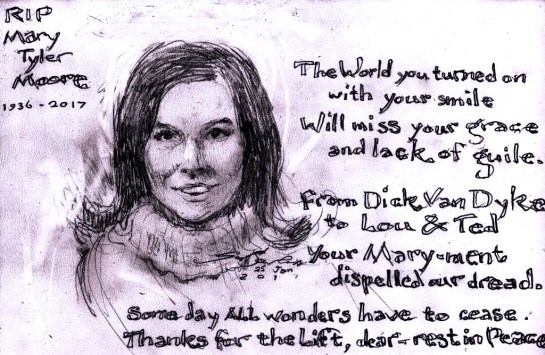 RIP
Mary
Tyler
Moore
1936-2017
The World you turned on
with your smile
Will miss your grace
and lack of guile.
From Dick Van Dyke
to Lou & Ted
Your Mary-ment
dispelled our dread.
25 Jan
2017
Some day ALL wonders have to cease.
Thanks for the Lift, dear-rest in Peace